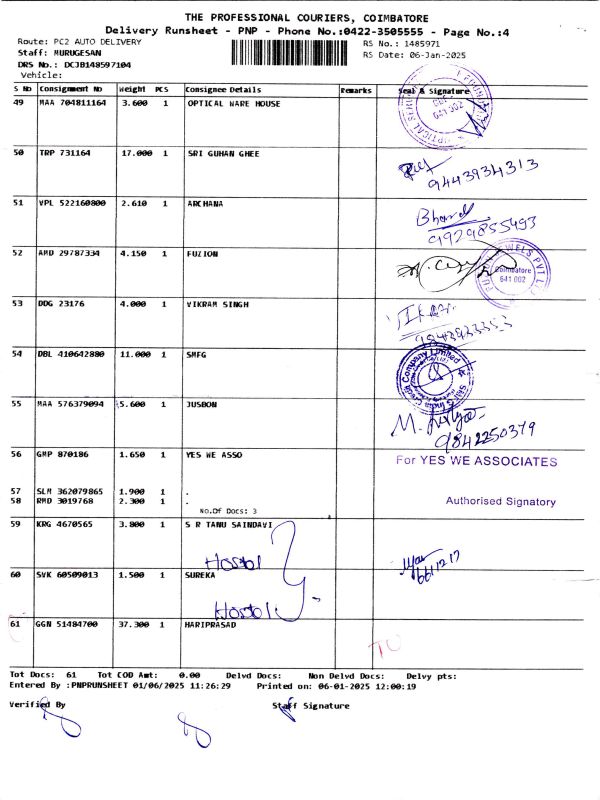 THE PROFESSIONAL COURIERS, COIMBATORE
Delivery Runsheet - PNP - Phone No.:0422-3505555 - Page No.:4
Route: PC2 AUTO DELIVERY RS No.: 1485971
Staff: MURUGESAN RS Date: 06-Jan-2025
DRS No.: DCJB148597104
Vehicle:
S No Consignment No Weight PCS Consignee Details Remarks Seal & Signature
49 MAA 704811164 3.600 1 OPTICAL WARE HOUSE
641 002
50 TRP 731164 17.000 1 SRI GUHAN GHEE
9443934313
51 VPL 522160800 2.610 1 ARCHANA
9929855493
52 AMD 29787334 4.150 1 FUZION
JEWELS PVT L
Coimbatore
641 002
53 DDG 23176 4.000 1 VIKRAM SINGH
54 DBL 410642880 11.000 1 SMFG
SMFG India Credit Company Limited
55 MAA 576379094 5.600 1 JUSBON
9842250379
56 GMP 870186 1.650 1 YES WE ASSO
For YES WE ASSOCIATES
57 SLM 362079865 1.900 1 .
58 RMD 3019768 2.300 1 .
Authorised Signatory
No.Of Docs: 3
59 KRG 4670565 3.800 1 S R TANU SAINDAVI
Hostol
60 SVK 60509013 1.500 1 SUREKA
Hostol
61 GGN 51484700 37.300 1 HARIPRASAD
TO
Tot Docs: 61 Tot COD Amt: 0.00 Delvd Docs: Non Delvd Docs: Delvy pts:
Entered By :PNPRUNSHEET 01/06/2025 11:26:29 Printed on: 06-01-2025 12:00:19
Verified By Staff Signature